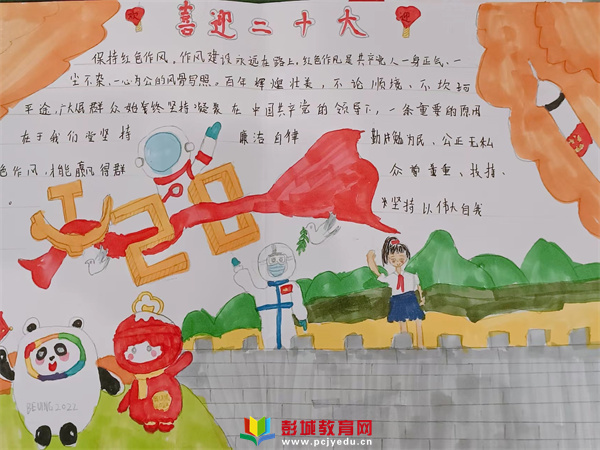 喜迎二十大
欢
迎
保持红色作风。作风建设永远在路上。红色作风是共产党人一身正气、一
尘不染、一心为公的风骨写照。百年辉煌壮美,不论顺境、不
平途,广大居群众始终坚持凝聚在中国共产党的领导下,一条重要的原因
在于我们党坚持 廉洁自律 勤勉为民、公正无私
色作风,才能赢得群 众尊重、扶持、
。 坚持以伟大自我
20
BEIJING 2022
彭城教育网
www.pcjyedu.cn